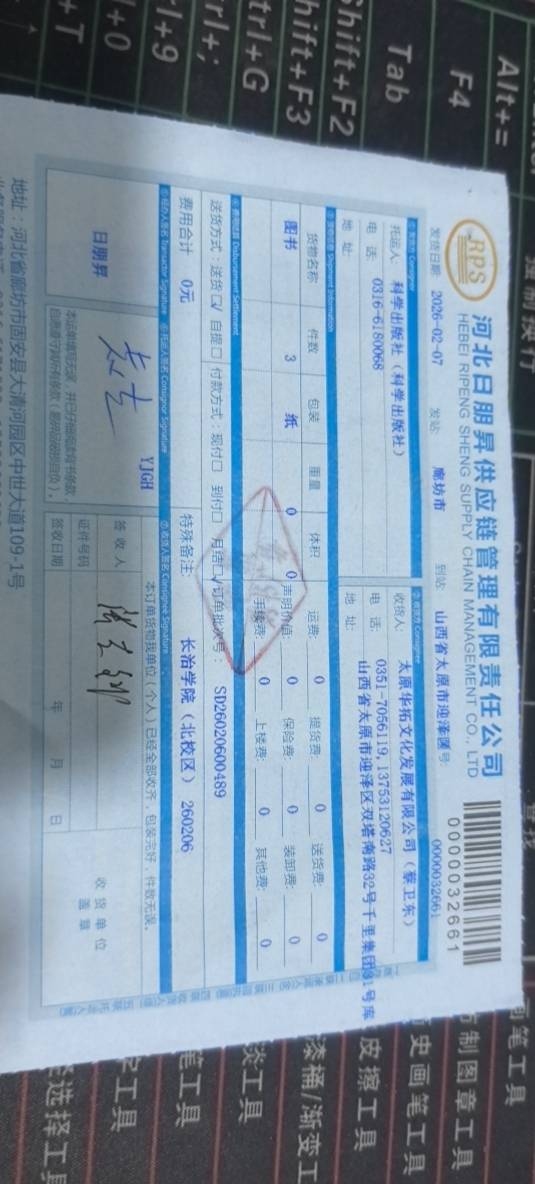 RPS
河北日朋昇供应链管理有限责任公司
HEBEI RIPENG SHENG SUPPLY CHAIN MANAGEMENT CO., LTD
0000032661
发货日期: 2026-02-07 发站: 廊坊市 到站: 山西省太原市迎泽区 号: 0000032661
①发货方 Consignor
②收货方 Consignee
托运人: 科学出版社(科学出版社)
收货人: 太原华拓文化发展有限公司(蔡卫东)
电 话: 0316-6180068
电 话: 0351-7056119,13753120627
地 址:
地 址: 山西省太原市迎泽区双塔南路32号千里集团31号库
③货物信息 Shipment Information
货物名称 件数 包装 重量 体积 运费: 0 提货费: 0 送货费: 0
图书 3 纸 0 0 声明价值: 0 保险费: 0 装卸费: 0
手续费: 0 上楼费: 0 其他费: 0
④费用信息 Disbursement Settlement
送货方式:送货☑ 自提☐ 付款方式:现付☐ 到付☐ 月结☑ 订单批次号: SD26020600489
费用合计 0元 特殊备注: 长治学院(北校区) 260206
⑤经办人签名 Transactor Signature ⑥托运人签名 Consignor Signature ⑦收货人签名 Consignee Signature
日朋昇
YJGH
本订单货物我单位(个人)已经全部收齐,包装完好,件数无误。
签收人
证件号码
签收日期 年 月 日
收货单位
盖章
地址:河北省廊坊市固安县大清河园区中世大道109-1号
Alt+=
F4
Tab
Shift+F2
Shift+F3
Ctrl+G
Ctrl+;
Ctrl+9
强制换行
查找
画笔工具
仿制图章工具
史画笔工具
皮擦工具
漆桶/渐变工
淡工具
笔工具
字工具
选择工具